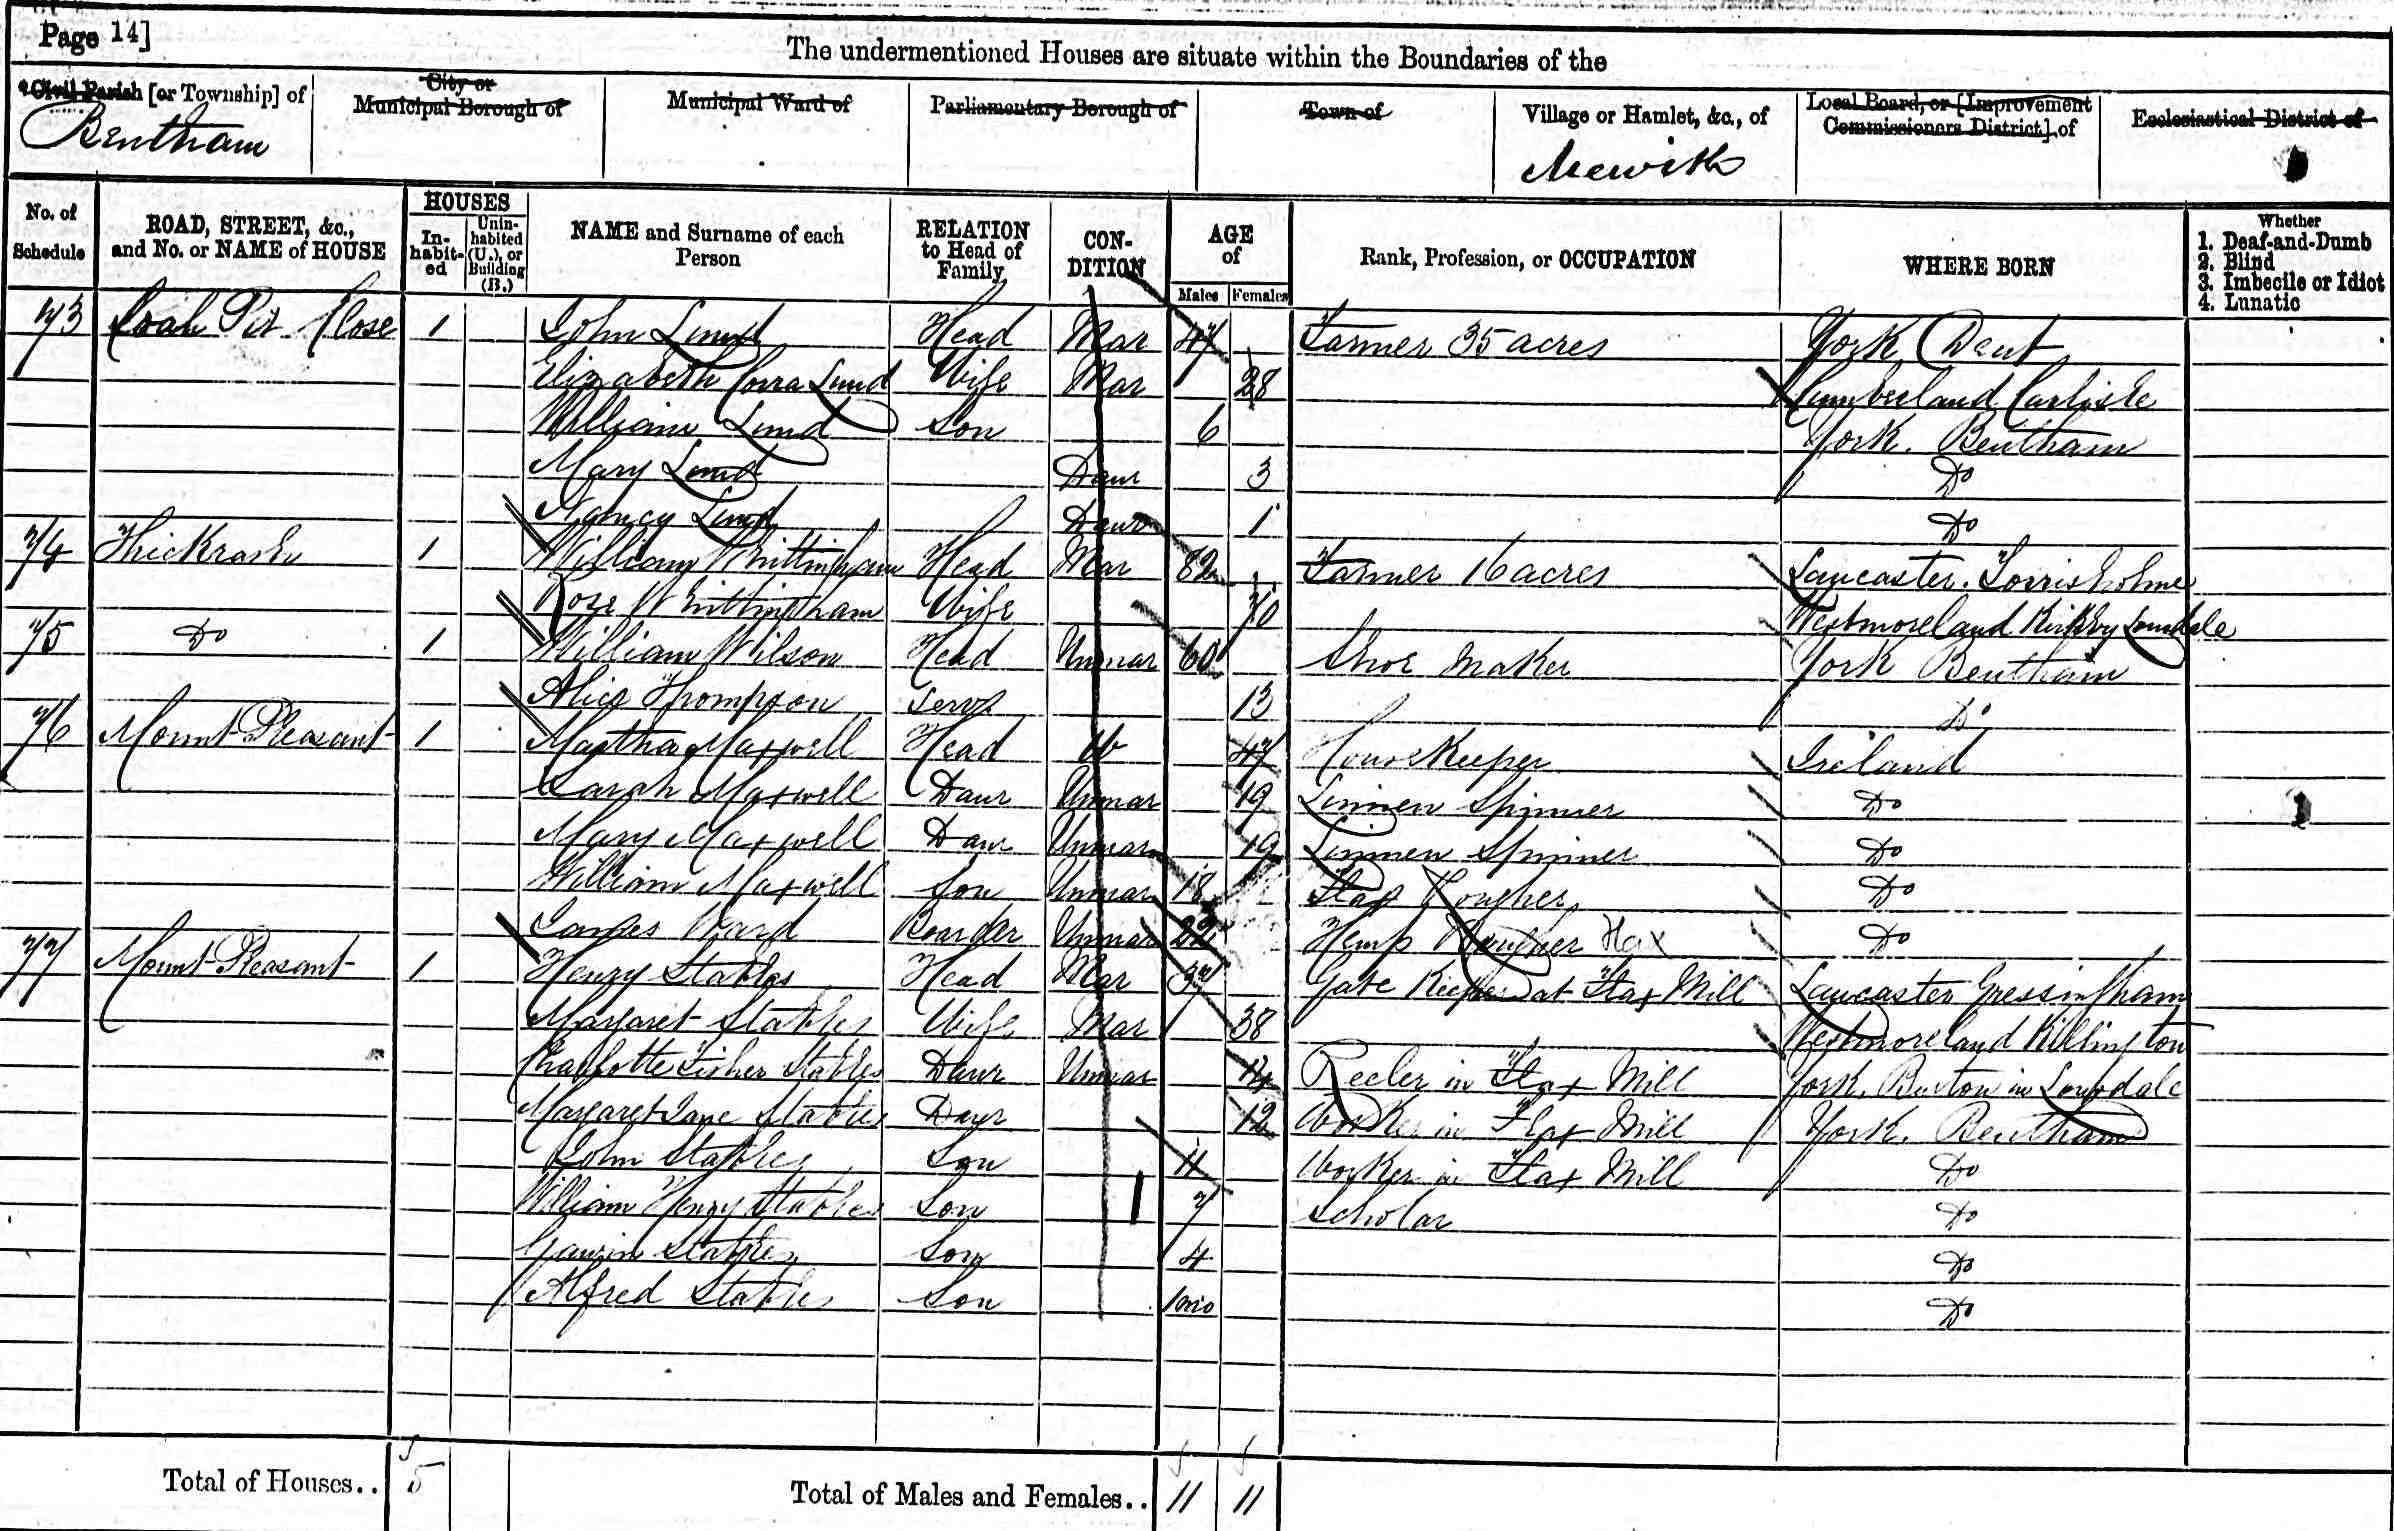 Page 14]
The undermentioned Houses are situate within the Boundaries of the
Civil Parish [or Township] of
City or Municipal Borough of
Municipal Ward of
Parliamentary Borough of
Town of
Village or Hamlet, &c., of
Local Board, or [Improvement Commissioners District] of
Ecclesiastical District of
Bentham
Mewith
No. of Schedule
ROAD, STREET, &c., and No. or NAME of HOUSE
HOUSES
In-habit-ed
Unin-habited (U.), or Building (B.)
NAME and Surname of each Person
RELATION to Head of Family
CON-DITION
AGE of
Males
Females
Rank, Profession, or OCCUPATION
WHERE BORN
Whether
1. Deaf-and-Dumb
2. Blind
3. Imbecile or Idiot
4. Lunatic
73 Coal Pit Close 1 John Lund Head Mar 47 Farmer 35 acres York Dent
Elizabeth Corra Lund Wife Mar 28 Cumberland Carlisle
William Lund Son 6 York. Bentham
Mary Lund Daur 3 Do
Nancy Lund Daur 1 Do
74 Thickrash 1 William Whittingham Head Mar 82 Farmer 16 acres Lancaster. Torrisholme
Rose Whittingham Wife 70 Westmoreland Kirkby Lonsdale
75 Do 1 William Wilson Head Unmar 60 Shoe Maker York Bentham
Alice Thompson Serv 13 Do
76 Mount Pleasant 1 Martha Maxwell Head W 47 Housekeeper Ireland
Sarah Maxwell Daur Unmar 19 Linnen Spinner Do
Mary Maxwell Daur Unmar 19 Linnen Spinner Do
William Maxwell Son Unmar 18 Flax Rougher Do
James Ward Boarder Unmar 22 Hemp Rougher Flax Do
77 Mount Pleasant 1 Henry Stables Head Mar 37 Gate Keeper at Flax Mill Lancaster Gressingham
Margaret Stables Wife Mar 38 Westmoreland Killington
Charlotte Fisher Stables Daur Unmar 14 Reeler in Flax Mill York. Burton in Lonsdale
Margaret Jane Stables Daur 12 Worker in Flax Mill York. Bentham
John Stables Son 11 Worker in Flax Mill Do
William Henry Stables Son 7 Scholar Do
Gawin Stables Son 4 Do
Alfred Stables Son 10mo Do
Total of Houses.. 5
Total of Males and Females.. 11 11